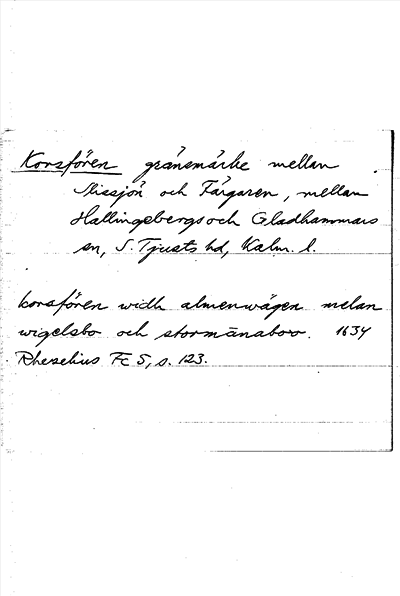 Korsfören gränsmärke mellan
Nissjön och Färgaren, mellan
Hallingebergs och Gladhammars
sn, S. Tjusts hd, Kalm. l.
korsfören widh almenwägen melan
wigelsbo och stormänaboo. 1634
Rhezelius Fc 5, s. 123.